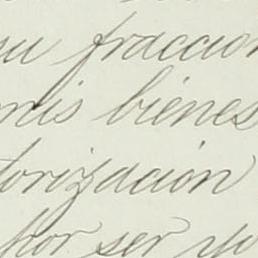 su fraccion
mis bienes
torización
por ser yo